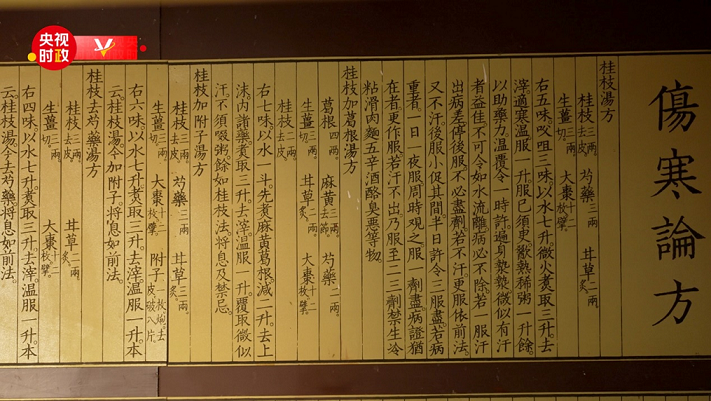 央视
时政
傷寒論方
桂枝湯方
桂枝三兩去皮 芍藥三兩 甘草二兩炙
生薑三兩切 大棗十二枚擘
右五味㕮咀三味。以水七升。微火煮取三升。去
滓。適寒溫服一升。服已須臾歠熱稀粥一升餘。
以助藥力。溫覆令一時許。遍身漐漐微似有汗
者益佳。不可令如水流離。病必不除。若一服汗
出病差。停後服。不必盡劑。若不汗。更服依前法。
又不汗。後服小促其間。半日許令三服盡。若病
重者。一日一夜服。周時觀之。服一劑盡。病證猶
在者。更作服。若汗不出。乃服至二三劑。禁生冷
粘滑肉麵五辛酒酪臭惡等物。
桂枝加葛根湯方
葛根四兩 麻黃去節 芍藥二兩
生薑三兩切 甘草二兩炙 大棗十二枚擘
桂枝二兩去皮
右七味以水一斗。先煮麻黃葛根。減二升。去上
沫。內諸藥。煮取三升。去滓。溫服一升。覆取微似
汗。不須啜粥。餘如桂枝法將息及禁忌。
桂枝加附子湯方
桂枝三兩去皮 芍藥三兩 甘草三兩炙
生薑三兩切 大棗十二枚擘 附子一枚炮去皮破八片
右六味以水七升。煮取三升。去滓。溫服一升。本
云桂枝湯。今加附子。將息如前法。
桂枝去芍藥湯方
桂枝三兩去皮 甘草二兩炙
生薑三兩切 大棗十二枚擘
右四味。以水七升。煮取三升。去滓。溫服一升。本
云桂枝湯。今去芍藥。將息如前法。